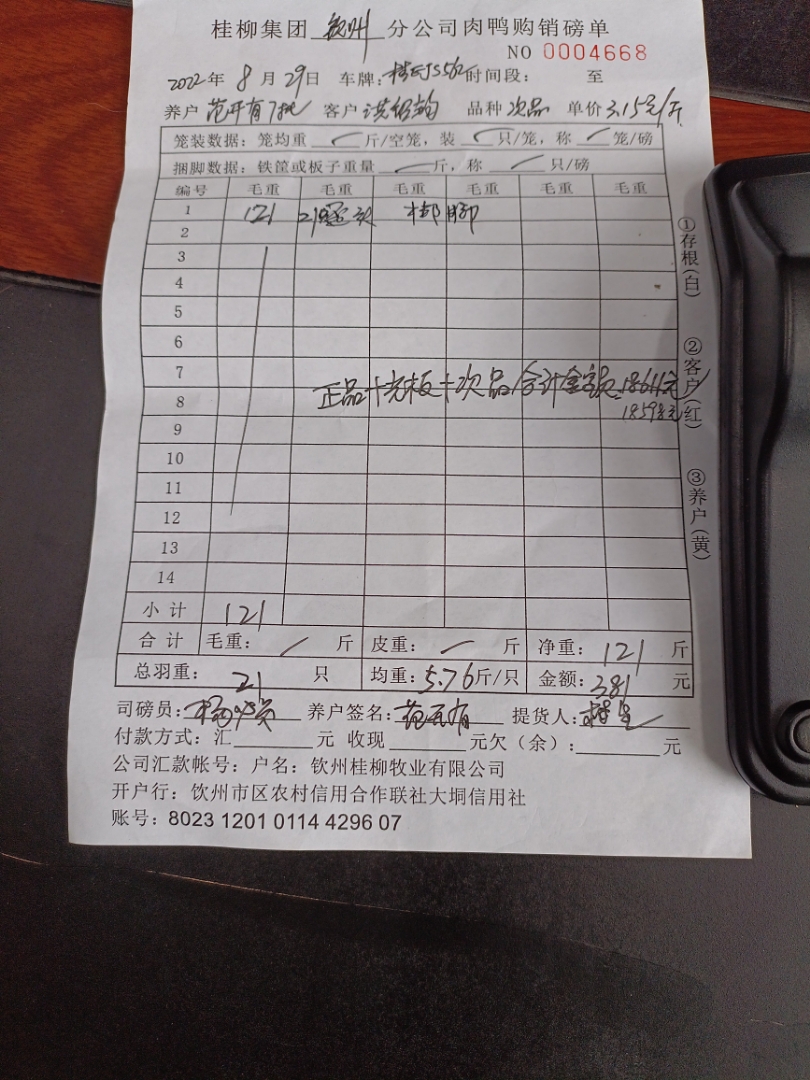 桂柳集团 钦州 分公司肉鸭购销磅单
NO 0004668
2022年 8 月 29日 车牌: 时间段: 至
养户 范开有7批 客户 洪绍韵 品种 次品 单价 3.15元/斤
笼装数据: 笼均重 / 斤/空笼, 装 / 只/笼, 称 / 笼/磅
捆脚数据: 铁筐或板子重量 / 斤, 称 / 只/磅
编号 毛重 毛重 毛重 毛重 毛重 毛重
1 121 21 梆脚
2
3
4
5
6
7
正品+光板+次品合计金额:18611元
8
18598元
9
10
11
12
13
14
小计 121
合计 毛重: / 斤 皮重: / 斤 净重: 121 斤
总羽重: 21 只 均重: 5.76斤/只 金额: 381 元
司磅员: 养户签名: 范开有 提货人:
付款方式: 汇 元 收现 元欠(余): 元
公司汇款帐号: 户名: 钦州桂柳牧业有限公司
开户行: 饮州市区农村信用合作联社大垌信用社
账号: 8023 1201 0114 4296 07
①存根(白) ②客户(红) ③养户(黄)